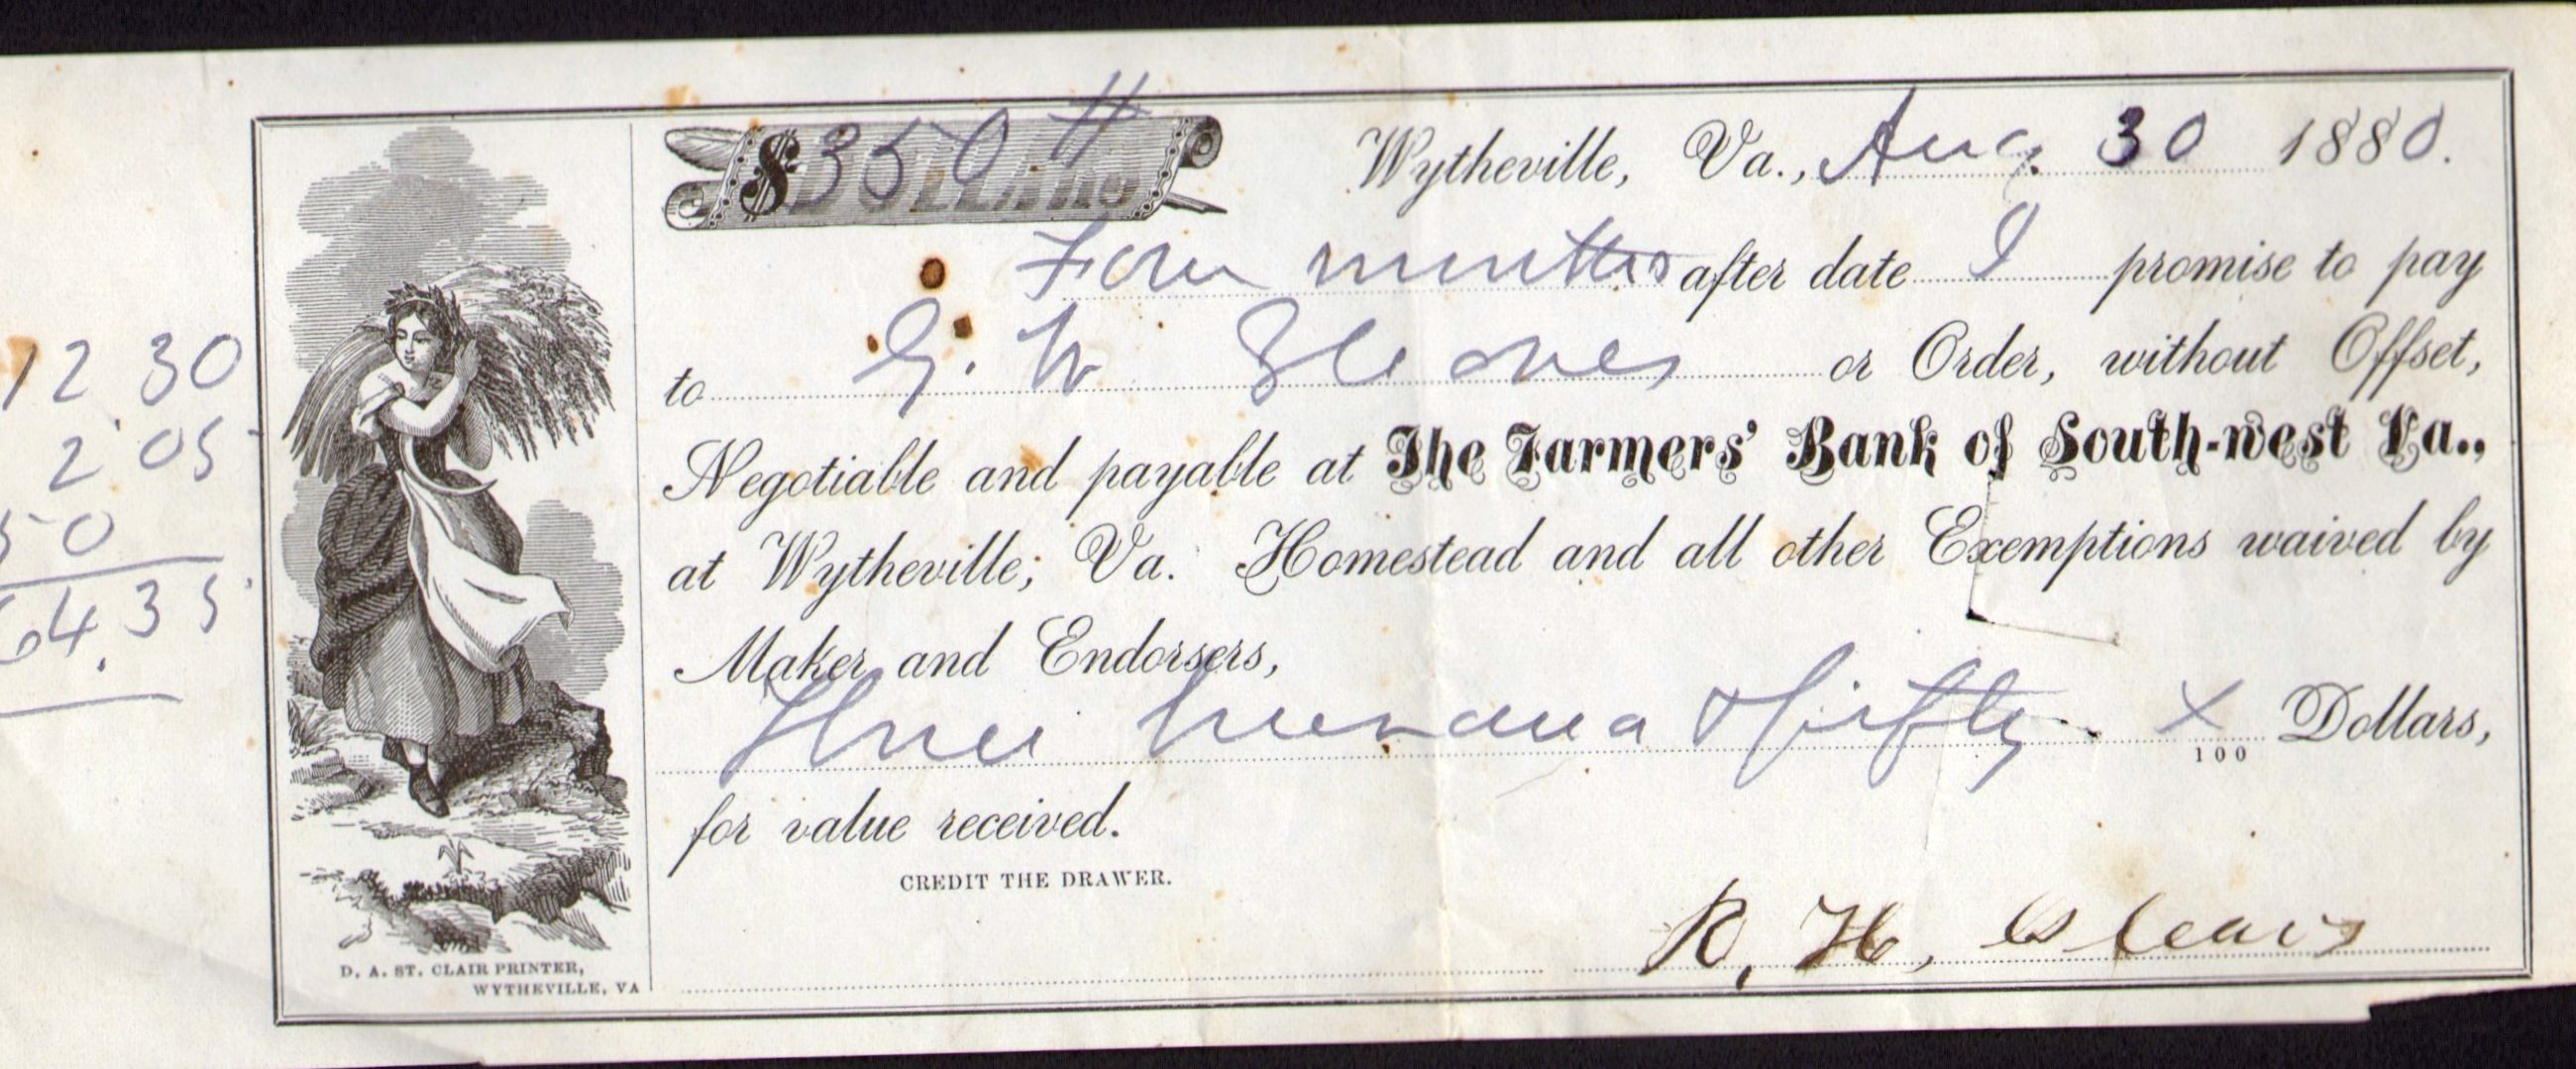 $350 #
DOLLARS
Wytheville, Va., Aug. 30 1880.
Four months after date I promise to pay
to G. W. Gleaves or Order, without Offset,
Negotiable and payable at The Farmers' Bank of South-west Va.,
at Wytheville, Va. Homestead and all other Exemptions waived by
Maker and Endorsers,
Three hundred & fifty x/100 Dollars,
for value received.
CREDIT THE DRAWER.
R. H. Gleaves
D. A. ST. CLAIR PRINTER,
WYTHEVILLE, VA
12.30
2.05
50
64.35